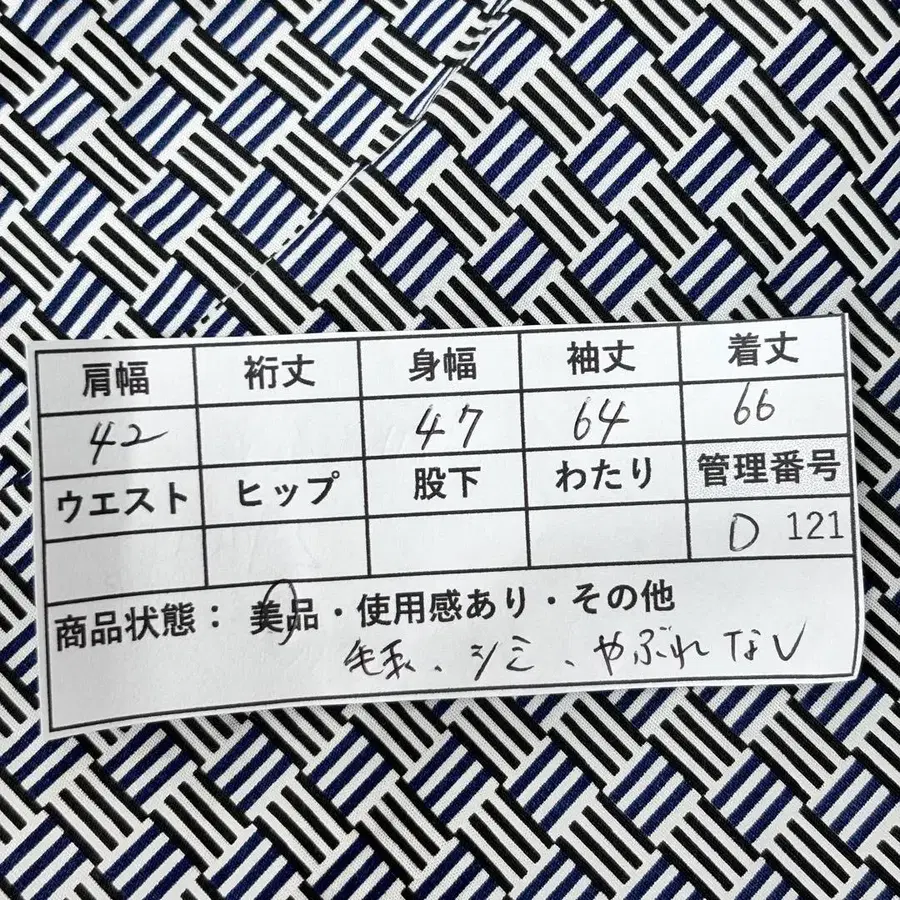 肩幅 裄丈 身幅 袖丈 着丈
42 47 64 66
ウエスト ヒップ 股下 わたり 管理番号
D 121
商品状態：美品・使用感あり・その他
毛玉、シミ、やぶれなし